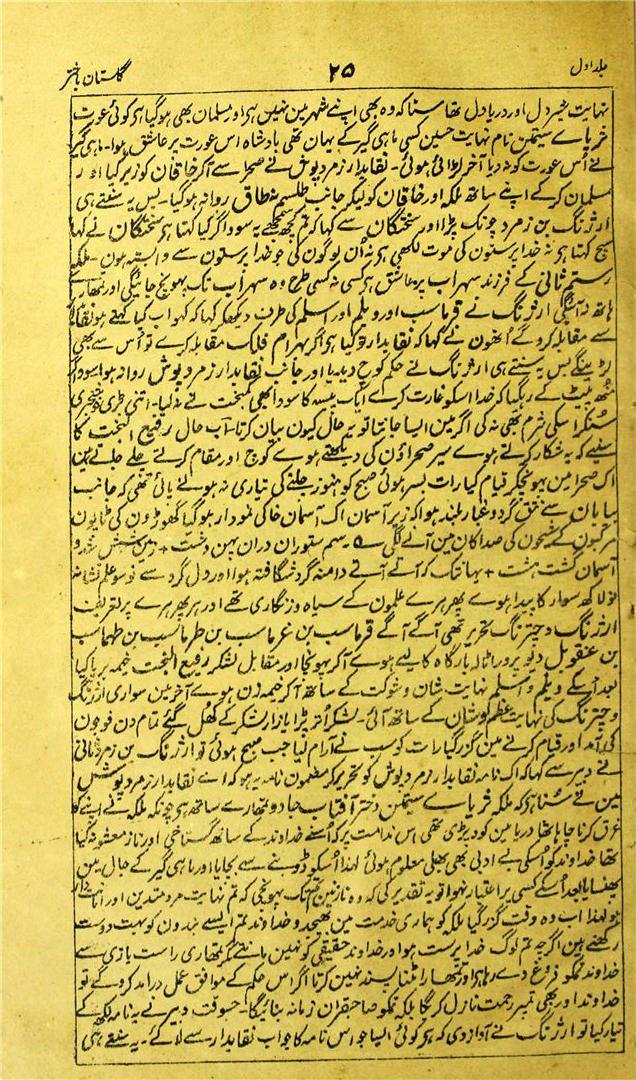 جلد اول ۲۵ گلستان باختر
نہایت شیر دل اور دریا دل تھا سنا کہ وہ بھی اپنے شہر مین نہین ہی اور مسلمان بھی ہو گیا ہی کوئی عورت
ثریاے سیمتن نام نہایت حسین کسی ماہی گیر کے یہان تھی بادشاہ اس عورت پر عاشق ہوا۔ ماہی گیر
نے اُس عورت کو نہ دیا آخر لڑائی ہوئی۔ نقابدار زمرد پوش نے صحرا سے آکر خاقان کو زیر کیا اور
مسلمان کرکے اپنے ساتھ ملکہ اور خاقان کو لیکر جانب طلسم نہ طاق روانہ ہو گیا۔ پس یہ سنتے ہی
ارژنگ بن زمرد چونک پڑا اور سختگان سے کہا کہ تم کچھ سمجھے یہ سوداگر کیا کہتا ہی سختگان نے کہا
سچ کہتا ہی نہ خدا پرستون کی موت لکھی ہی نہ اُن لوگون کی جو خدا پرستون سے وابستہ ہون۔ ملکہ
رستم ثانی کے فرزند سہراب پر عاشق ہی کسی نہ کسی طرح وہ سہراب تک پہونچ جائیگی اور تمھارے
ہاتھ نہ آئیگی ارژنگ نے قرماسب اور ویلم اور اسلم کی طرف دیکھ کر کہا کہ کہو اب کیا کہتے ہو نقابدار
سے مقابلہ کروگے اُنھون نے کہا کہ نقابدار تو کیا ہی اگر بہرام فلک مقابلہ کرے تو اُس سے بھی
لڑینگے بس یہ سنتے ہی ارژنگ نے حکم کوچ دیدیا اور جانب نقابدار زمرد پوش روانہ ہوا سوداگر
منھ پیٹ کے رہگیا کہ خدا اسکو غارت کرے ایک پیسہ کا سودا بھی کمبخت نے نہ لیا۔ اتنی بڑی خوشخبری
سُنکر اسکی شرم بھی نہ کی اگر مین ایسا جانتا تو یہ حال کیون بیان کرتا۔ اب حال رفیع البخت کا
سنیے کہ یہ شکار کرتے ہوے سیر صحراؤن کی دیکھتے ہوے کوچ اور مقام کرتے چلے جاتے ہین
اک صحرا مین پہونچکر قیام کیا رات بسر ہوئی صبح کو ہنوز چلنے کی تیاری نہ ہونے پائی تھی کہ جانب
بیابان سے حق گرد و غبار بلند ہوا کہ زیر آسمان اک آسمان خاکی نمودار ہو گیا گھوڑون کی ٹاپون
مرکبون کے شیحون کی صدا کان مین آنے لگی ؎ ز سم ستوران دران پہن دشت + زمین شش شد و
آسمان گشت ہشت + یہانتک کہ آتے آتے دامنہ گرد شگافتہ ہوا اور دل گرد سے نو سو علم نشانہ
نو لاکھ سوار کا پیدا ہوے پھرہرے علمون کے سیاہ و زنگاری تھے اور ہر پھرہرے پر تعریف
ارژنگ و جیترنگ تحریر تھی آگے آگے قرماسب بن غرماسب بن طرماسب بن طہماسب
بن عنقوبل دیو پرور اٹالہ بارگاہ کا لیے ہوے آکر پہونچا اور مقابل لشکر رفیع البخت خیمہ برپا کیا
بعد اُسکے ویلم و اسلم نہایت شان و شوکت کے ساتھ آکر خیمہ زن ہوے آخر مین سواری ارژنگ
و جیترنگ کی نہایت عظم و شان کے ساتھ آئی۔ لشکر اُتر پڑا بازار لشکر کے کھل گئے تمام دن فوجون
کی آمد اور قیام کرنے مین گزر گیا رات کو سب نے آرام لیا جب صبح ہوئی تو ارژنگ بن زمرد ثانی
نے دبیر سے کہا کہ اک نامہ نقابدار زمرد پوش کو تحریر کر مضمون نامہ یہ ہو کہ اے نقابدار زمرد پوش
مین نے سُنا ہی کہ ملکہ ثریاے سیمتن دختر آفتاب جادو تمھارے ساتھ ہی چونکہ ملکہ نے اپنے کو
غرق کرنا چاہا تھا دریا مین کود پڑی تھی اس ندامت پر کہ اُسنے خداوند کے ساتھ گستاخی اور ناز معشوقانہ کیا
تھا خداوند کو اُسکی بے ادبی بھی بھلی معلوم ہوئی لہذا اُسکو ڈوبنے سے بچایا اور ماہی گیر کے جال مین
پھنسایا بعد اُسکے کسی پر اعتبار نہوا تو یہ تقدیر کی کہ وہ نازنین تم تک پہونچی کہ تم نہایت مرد متدین اور امانتدار
ہو لہذا اب وہ وقت گزر گیا ملکہ کو ہماری خدمت مین بھیجدو خداوند تم ایسے بندون کو بہت دوست
رکھتے ہین اگرچہ تم لوگ خدا پرست ہو اور خداوند حقیقی کو نہین مانتے مگر تمھاری راست بازی سے
خداوند تمکو فروغ دے رہا ہی اور تمھارا مٹنا پسند نہین کرتا اگر اس حکم کے موافق عمل درآمد کروگے تو
خداوند اور بھی تمپر رحمت نازل کریگا بلکہ تمکو صاحبقران زمانہ بنائیگا۔ جسوقت دبیر نے یہ نامہ لکھ کے
تیار کیا تو ارژنگ نے آواز دی کہ ہی کوئی ایسا جو اس نامہ کا جواب نقابدار سے لائے۔ یہ سنتے ہی